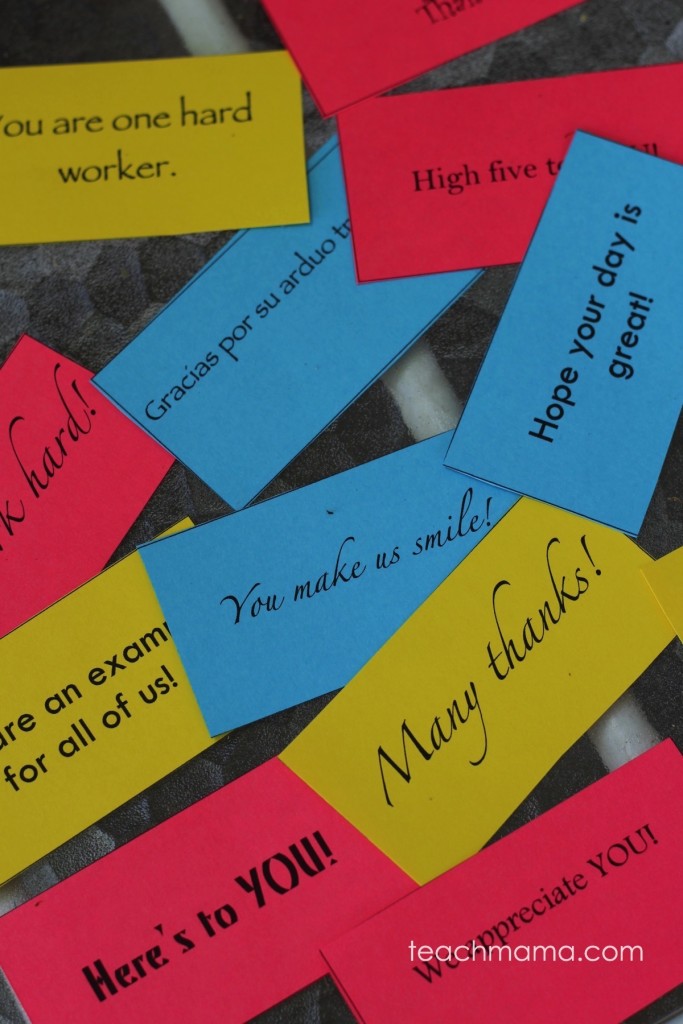 You are one hard
worker.
High five
Gracias por su arduo
Hope your day is
great!
hard!
You make us smile!
Many thanks!
are an
for all of us!
Here's to YOU!
We appreciate YOU!
teachmama.com